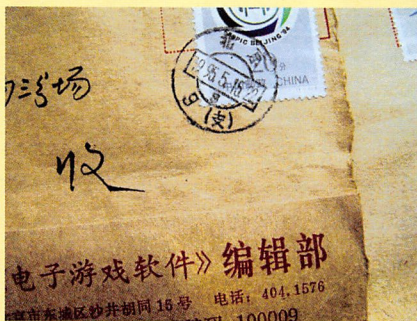 PIC BEIJING '94
20分
CHINA
北
1995.5.16
场
收
电子游戏软件》编辑部
京市东城区沙井胡同16号 电话：404.1576
100009